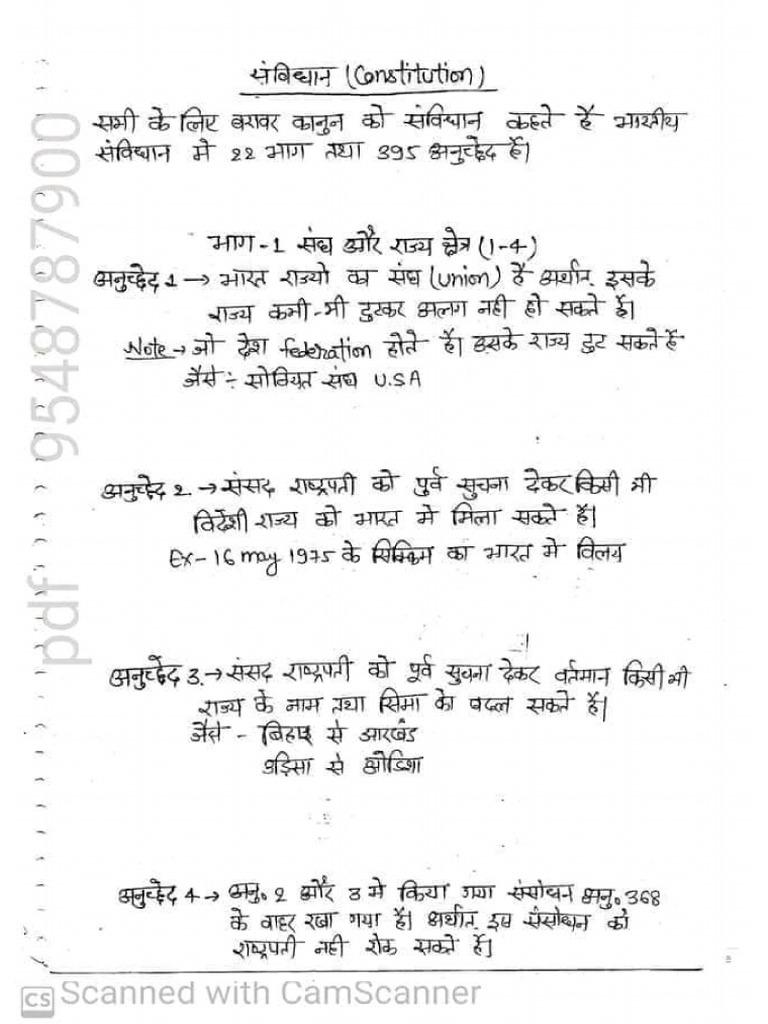 संविधान (Constitution)
सभी के लिए बराबर कानुन को संविधान कहते है भारतीय
संविधान मे 22 भाग तथा 395 अनुच्छेद है।
भाग-1 संघ और राज्य क्षेत्र (1-4)
अनुच्छेद 1 → भारत राज्यो का संघ (union) है अर्थात इसके
राज्य कभी-भी टुटकर अलग नही हो सकते है।
Note → जो देश federation होते है। उसके राज्य टुट सकते है
जैसे ÷ सोवियत संघ U.S.A
अनुच्छेद 2. → संसद राष्ट्रपती को पुर्व सुचना देकर किसी भी
विदेशी राज्य को भारत मे मिला सकते है।
Ex- 16 may 1975 के सिक्किम का भारत मे विलय
अनुच्छेद 3. → संसद राष्ट्रपती को पूर्व सुचना देकर वर्तमान किसी भी
राज्य के नाम तथा सिमा को बदल सकते है।
जैसे - बिहार से झारखंड
उड़िसा से ओडिशा
अनुच्छेद 4 → अनु. 2 और 3 मे किया गया संसोधन अनु. 368
के बाहर रखा गया है। अर्थात इस संसोधन को
राष्ट्रपती नही रोक सकते है।
pdf 9548787900
CS Scanned with CamScanner